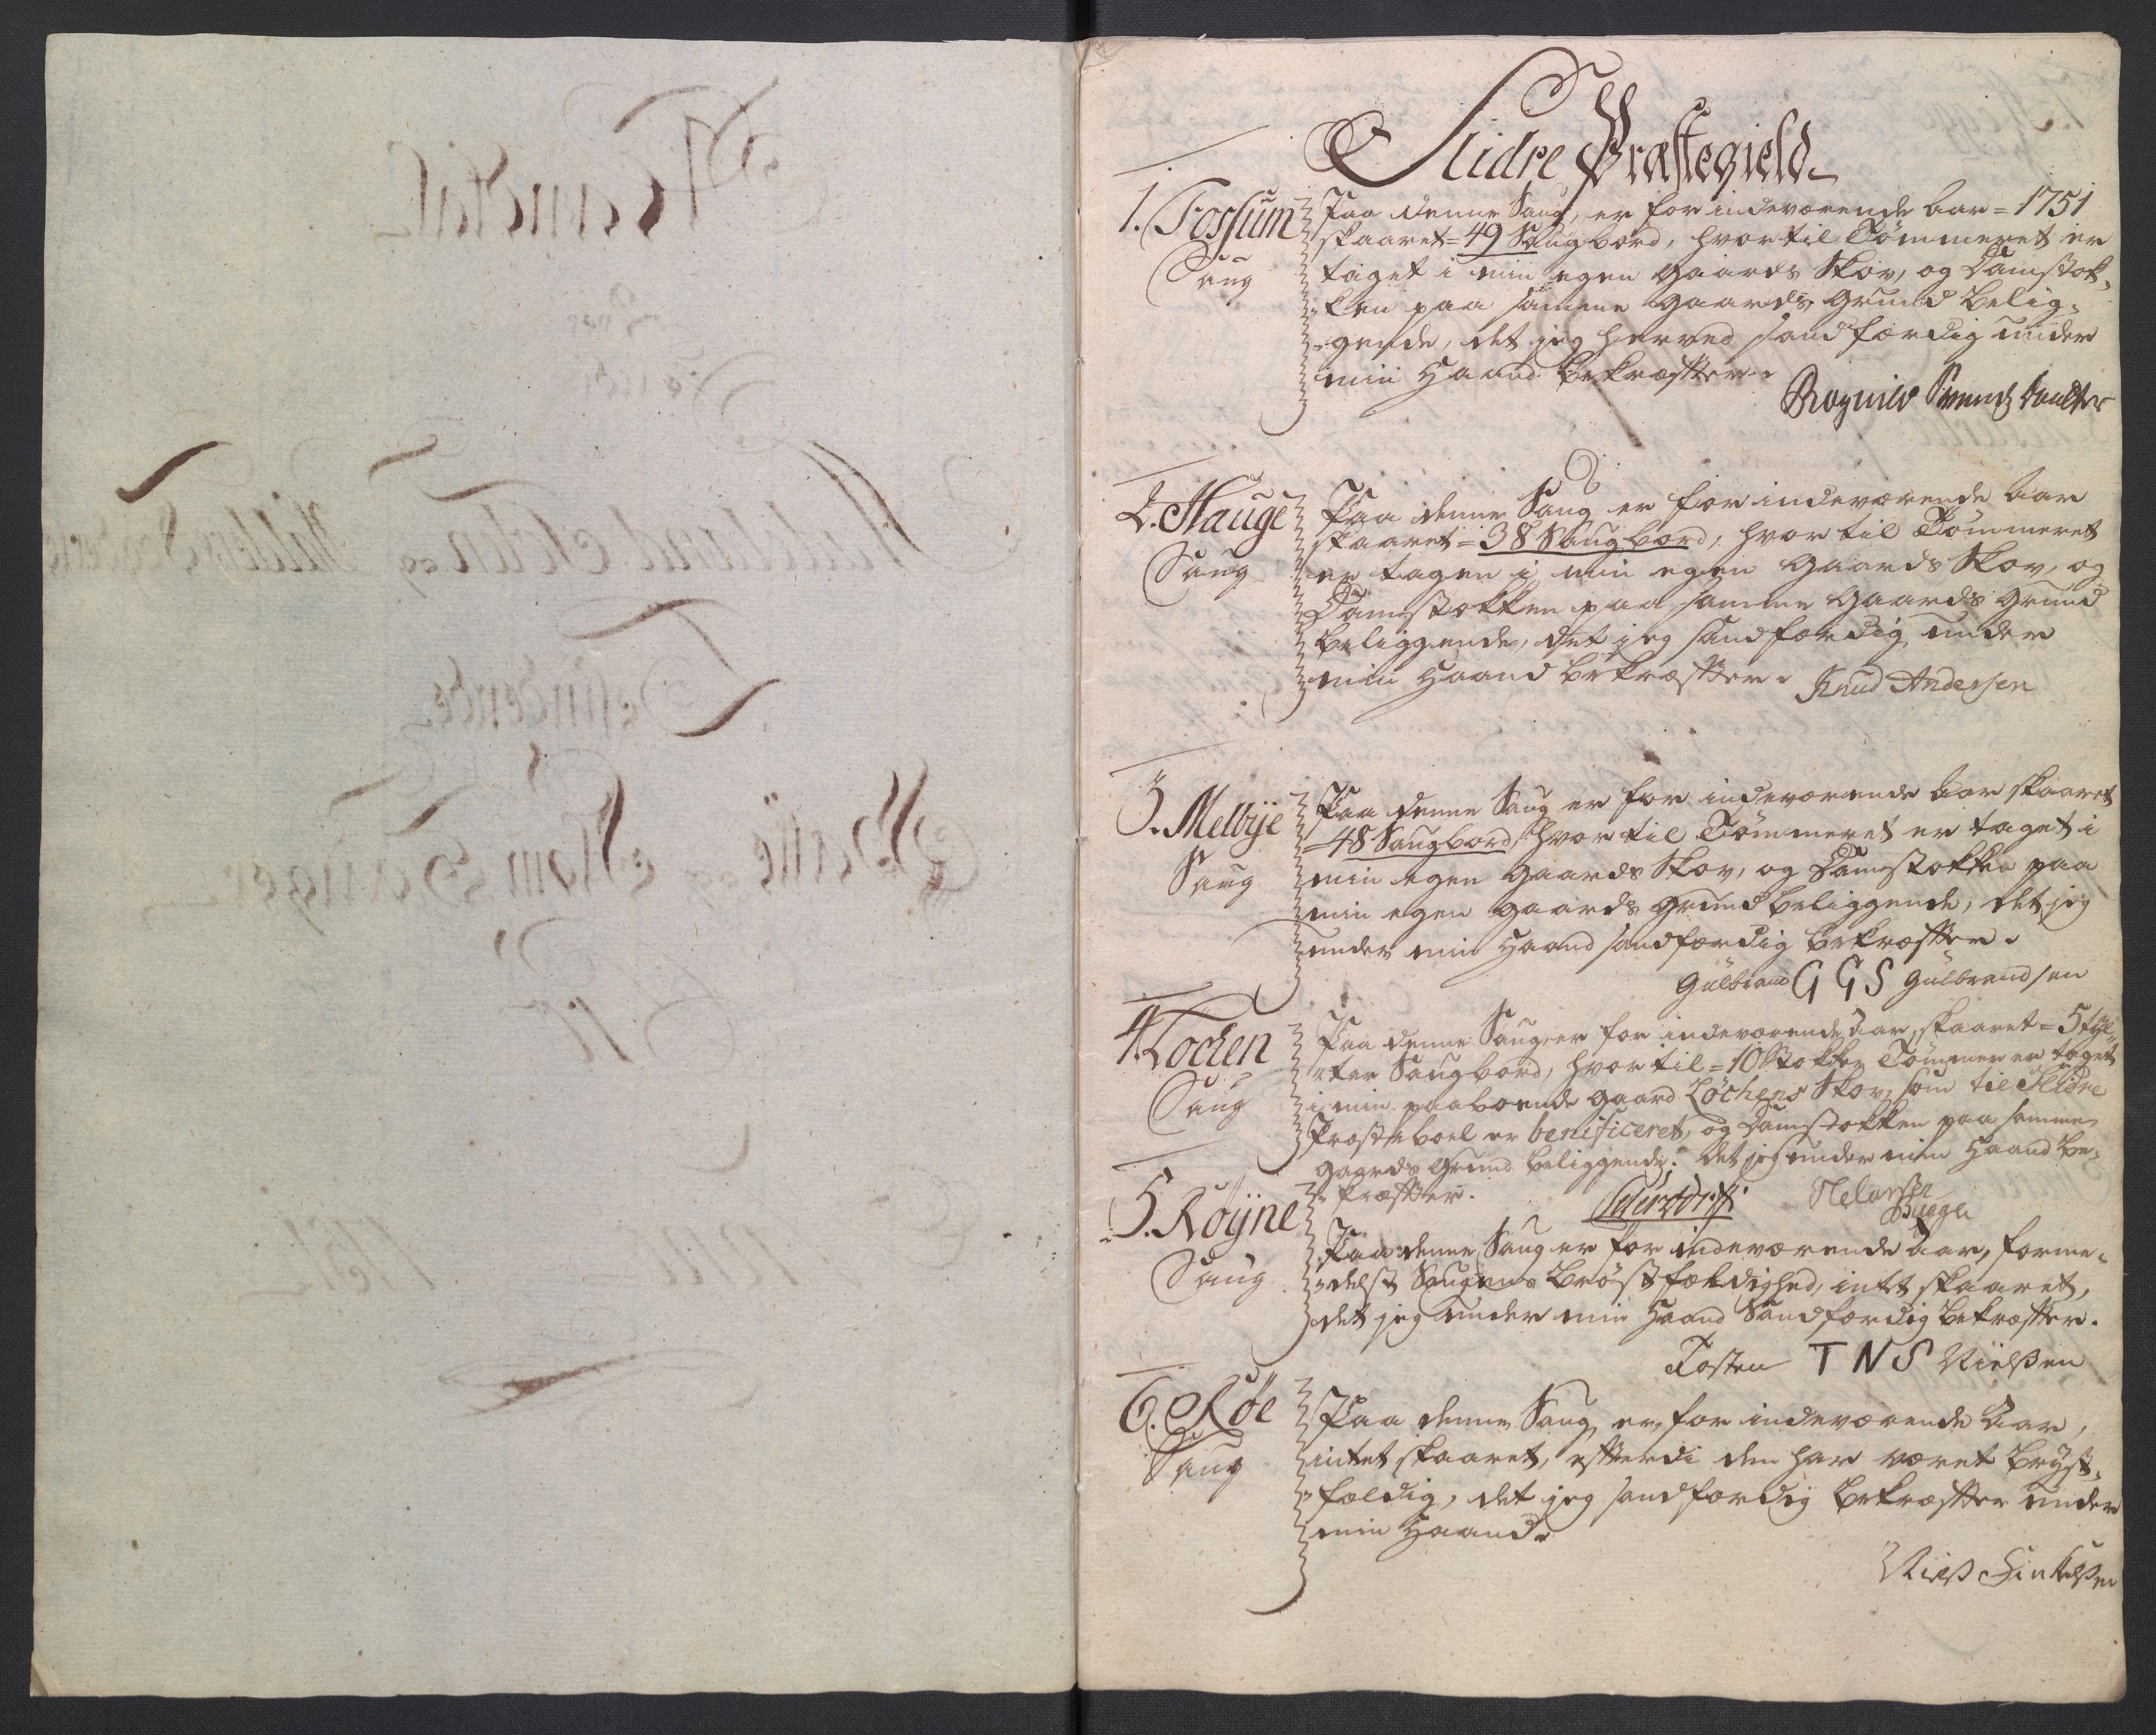 Slidre Præstegield
1. Fossum
Saug
Paa denne Saug, er for indeværende Aar = 1751
skaaret = 49 Saugbord, hvortil Tømmeret er
taget i min egen Gaards Skov, og Damstok-
ken paa samme Gaards Grund belig-
gende, det jeg herved sandfærdig under
min Haand bekræfter.
Rognild Svends Daatter
2. Hauge
Saug
Paa denne Saug er for indeværende Aar
skaaret = 38 Saugbord, hvortil Tømmeret
er tagen i min egen Gaards Skov, og
Damstokken paa samme Gaards Grund
beliggende, det jeg sandfærdig under
min Haand bekræfter.
Knud Andersen
3. Melbye
Saug
Paa denne Saug er for indeværende Aar skaaret
= 48 Saugbord, hvortil Tømmeret er taget i
min egen Gaards Skov, og Damstokken paa
min egen Gaards Grund beliggende, det jeg
under min Haand sandfærdig bekræfter.
Gulbrand G G S Gulbrandsen
4. Løchen
Saug
Paa denne Saug er for indeværende Aar, skaaret = 5 tyl-
ter Saugbord, hvortil = 10 Stokker Tømmer er taget
i min paaboende Gaard Løchens Skov, som til Slidre
Præsteboel er benificeret, og Damstokken paa samme
Gaards Grund beliggende. det jeg under min Haand be-
kræfter.
5. Røyne
Saug
Paa denne Saug er for indeværende Aar, forme-
delst Saugens Brøstfældighed, intet skaaret,
det jeg under min Haand Sandfærdig bekræfter.
Tosten T N S Nielßen
6. Røe
Saug
Paa denne Saug, er, for indeværende Aar,
intet skaaret, efterdi den har været Bryst-
fældig, det jeg sandfærdig bekræfter under
min Haand.